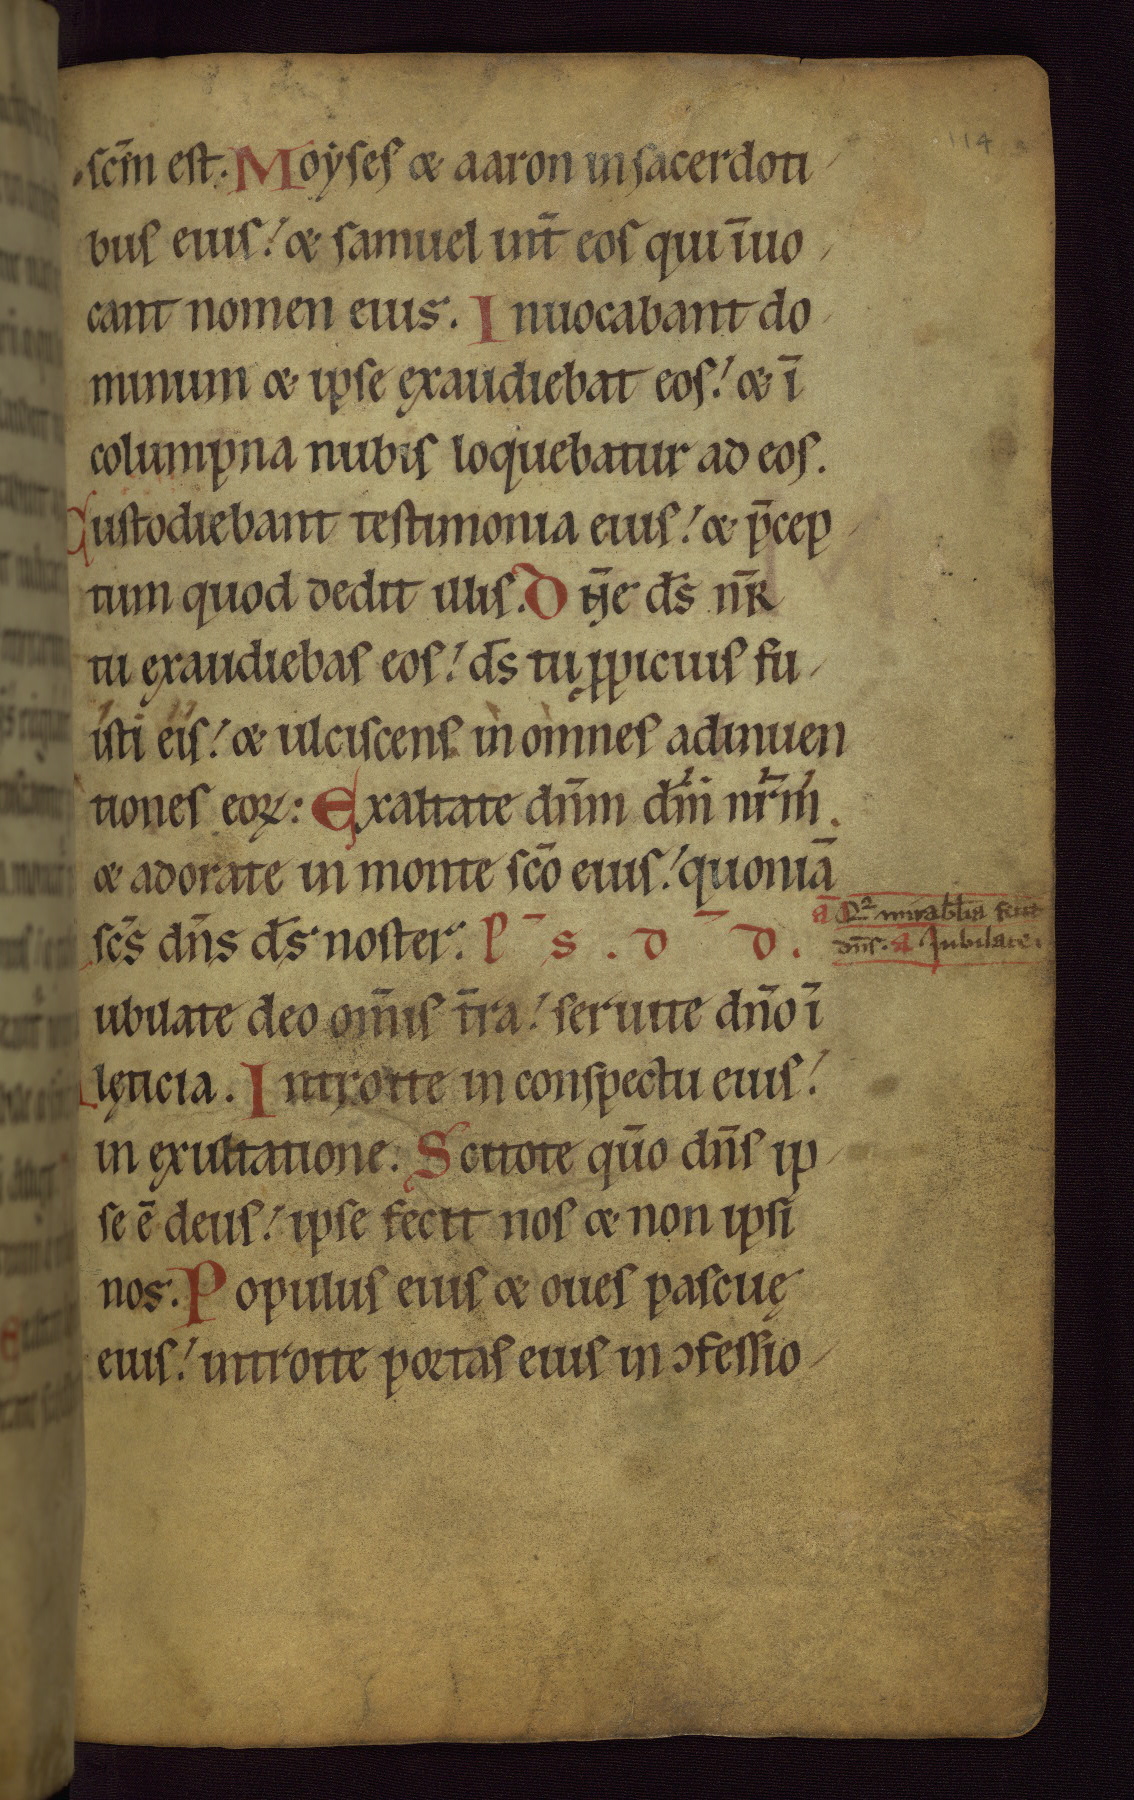 114
scm̄ est. Moẏses & aaron in sacerdoti
bus eius! & samuel int̄ eos qui īuo
cant nomen eius. Inuocabant do
minum & ipse exaudiebat eos! & ī
columpna nubis loquebatur ad eos.
Custodiebant testimonia eius! & p̄cep
tum quod dedit illis. Dn̄e ds̄ nr̄
tu exaudiebas eos! ds̄ tu ꝓpicius fu
isti eis! & ulciscens in omnes adinuen
tiones eoꝝ: Exaltate dnm̄ dm̄ nrm̄.
& adorate in monte sc̄o eius! quoniā
sc̄s dn̄s ds̄ noster. P ̄ s . D ̄ D .
ā Qr mirabilia fecit
dn̄s. a Iubilate.
ubilate deo om̄is t̄ra! seruite dn̄o ī
lęticia. Introite in conspectu eius!
in exultatione. Scitote qūo dn̄s ip
se ē deus! ipse fecit nos & non ipsi
nos. Populus eius & oues pascuę
eius! introite portas eius in ↄfessio